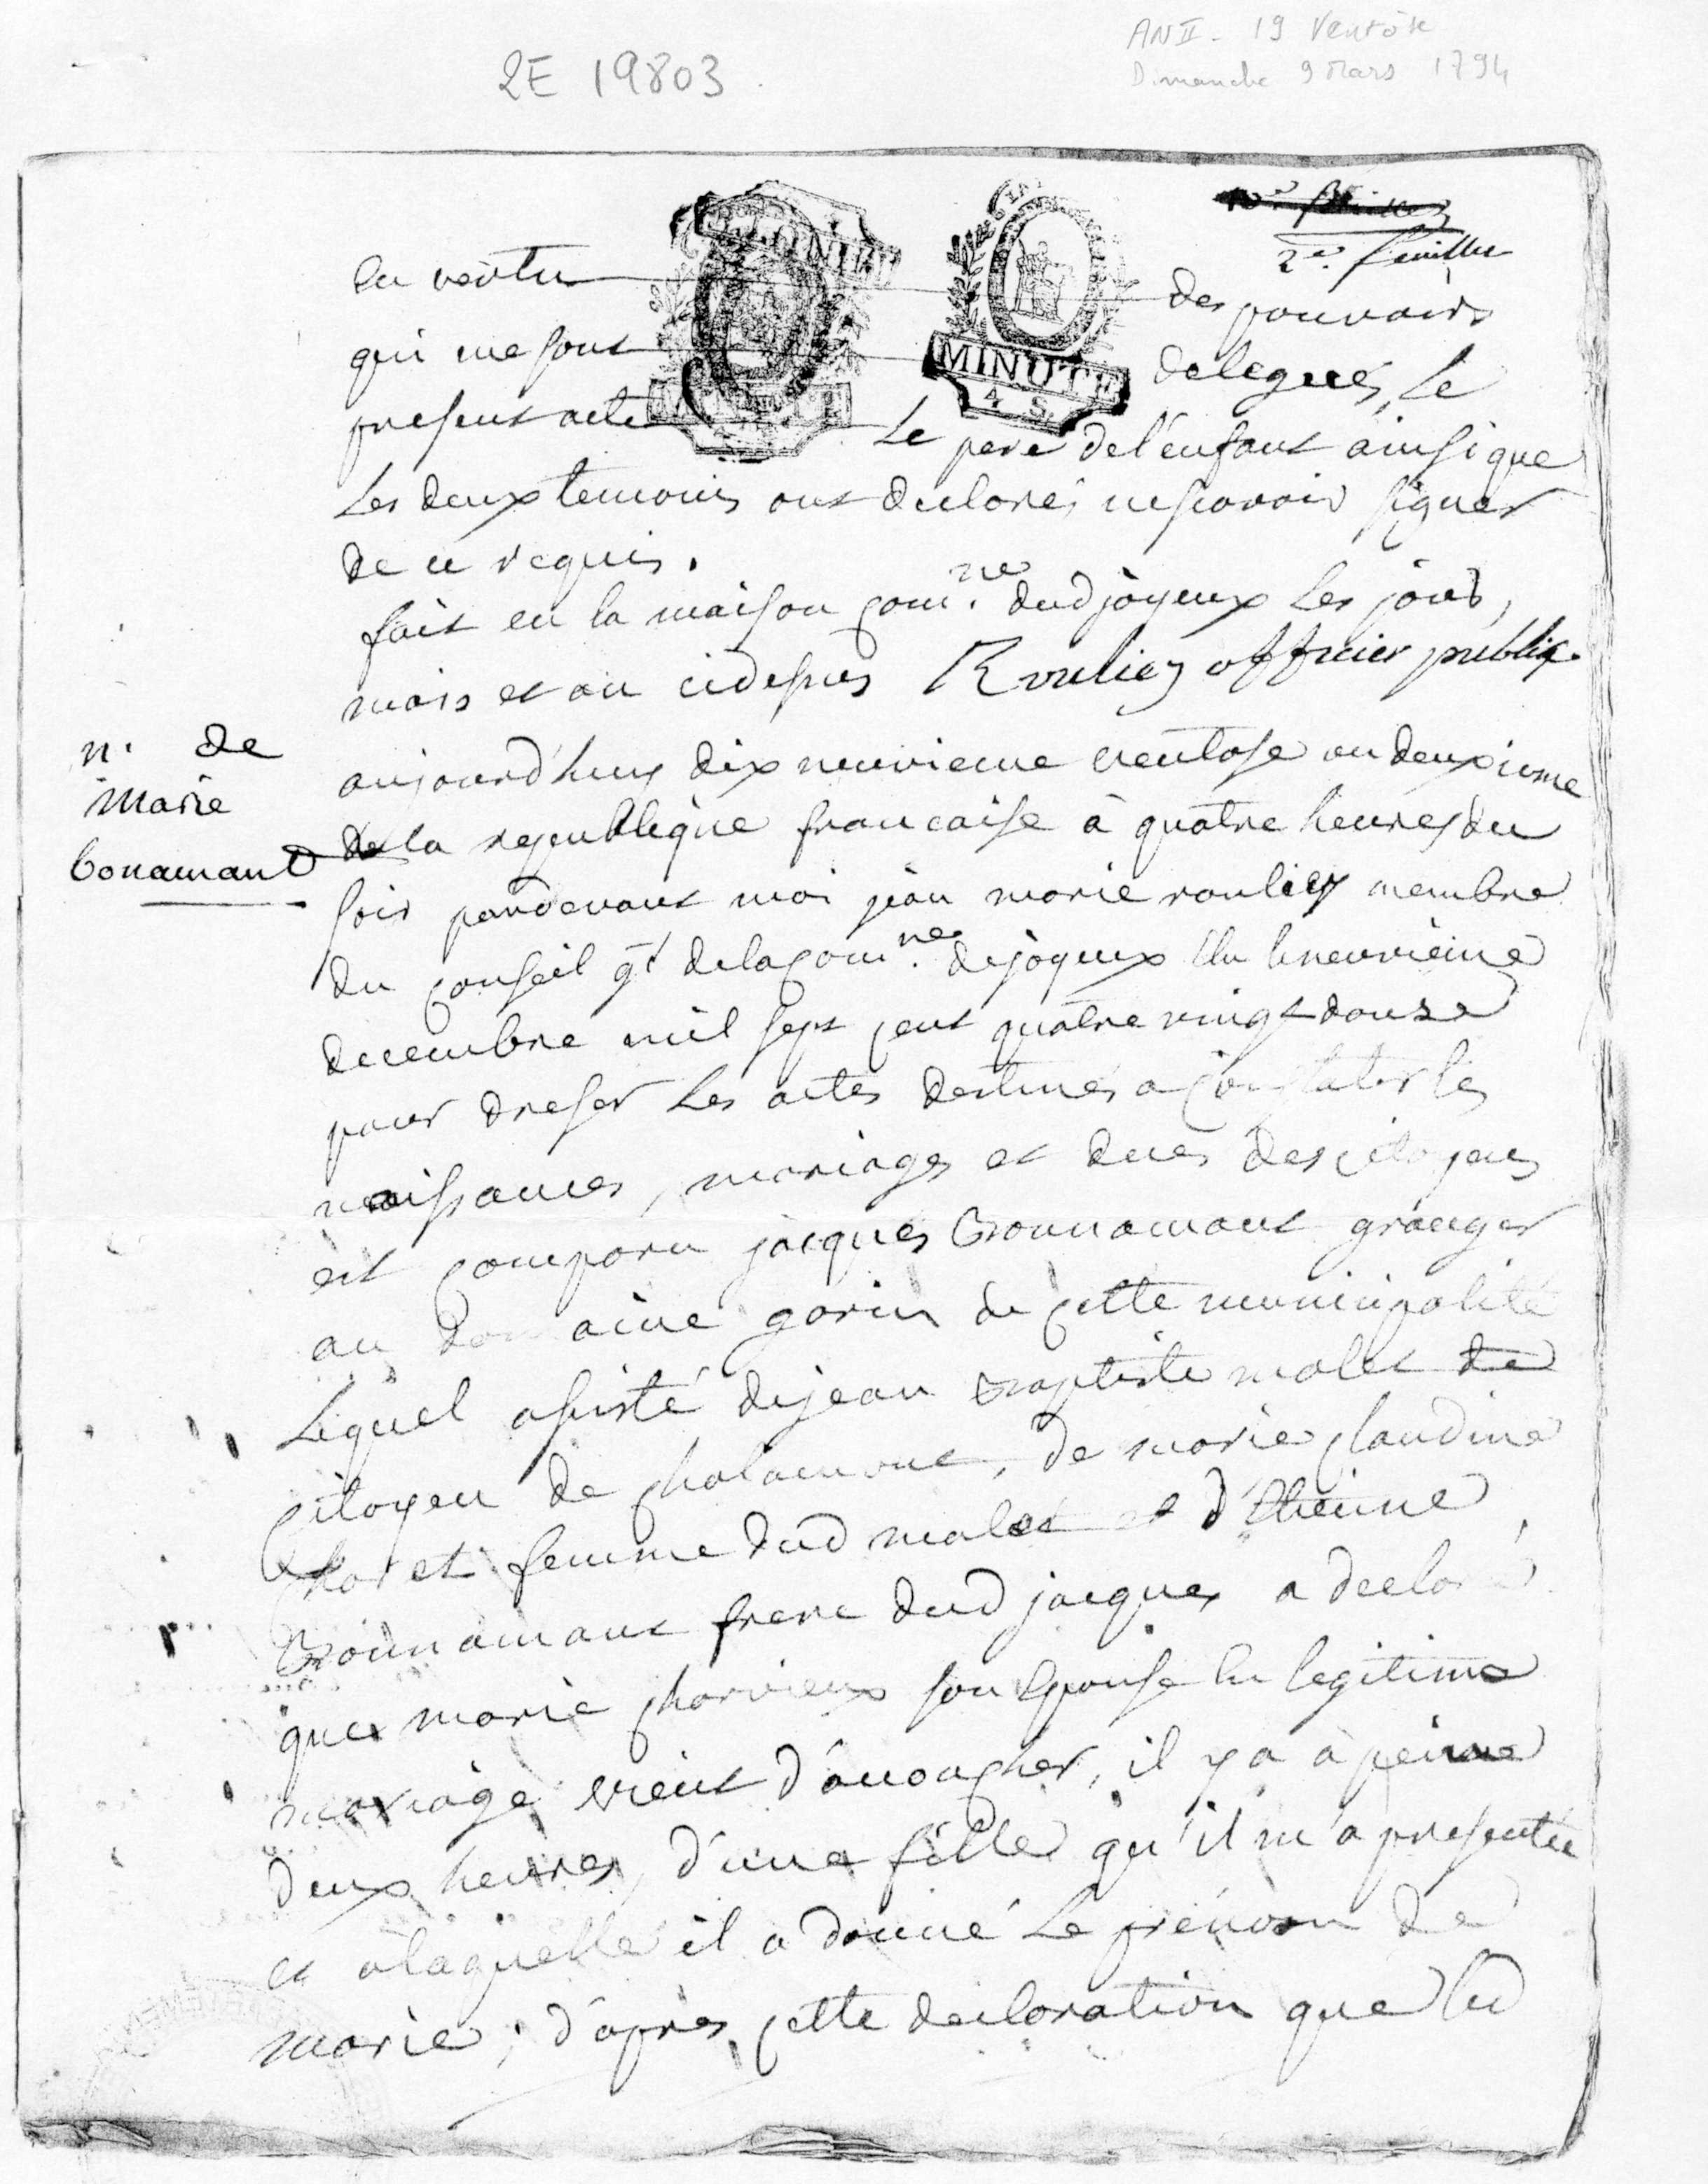 AN II - 19 Ventôse
Dimanche 9 Mars 1794
2E 19803
2e. feuillet
En vertu des pouvoirs
qui me sont délégués, le
MINUTE
4 S.
present acte Le pere de l'enfant ainsi que
Les deux temoins ont declarés ne scavoir signer
de ce requis.
fait en la maison com.ne dud joyeux les jour,
mois et an cidesus Roulier officier public.
n. de
Marie
bonamant
aujourd'huy dix neuvieme ventose an deuxieme
de la republique francaise à quatre heures du
soir pardevant moi jean marie roulier membre
du conseil gl de la com.ne de joyeux élu le neuvieme
decembre mil sept cent quatre vingt douze
pour dresser les actes destinés a constater les
naissances, mariages et deces des citoyens
est comparu jacques Bonnamant granger
au domaine gorin de cette municipalité
Lequel assisté de jean Baptiste molet de
citoyen de chalamont, de marie claudine
femme dud molet et d'Etienne
Bonnamant frere dud jacques a declaré
que marie charvieux son epouse en legitime
mariage vient d'accoucher, il y a à peine
deux heures, d'une fille qu'il m'a presentée
et à laquelle il a donné le prénom de
marie; d'apres cette declaration que led